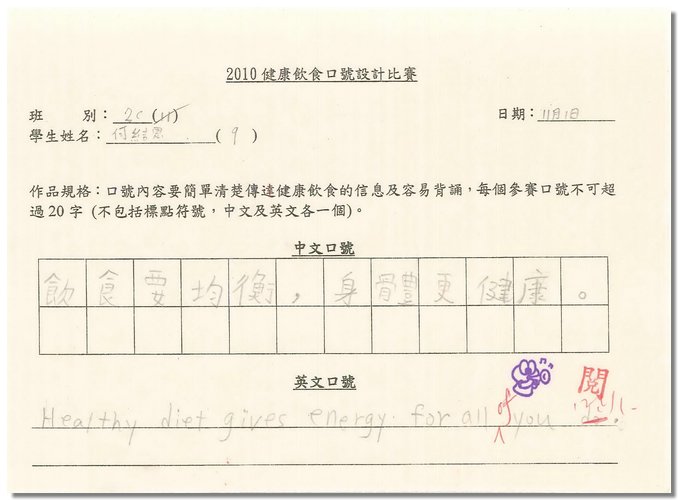 2010 健康飲食口號設計比賽
班　　別： 2C (11)
日期： 11月1日
學生姓名： 何結恩 ( 9 )
作品規格：口號內容要簡單清楚傳達健康飲食的信息及容易背誦，每個參賽口號不可超
過20字 (不包括標點符號，中文及英文各一個)。
中文口號
飲食要均衡，身體更健康。
英文口號
閱
Healthy diet gives energy for all of you